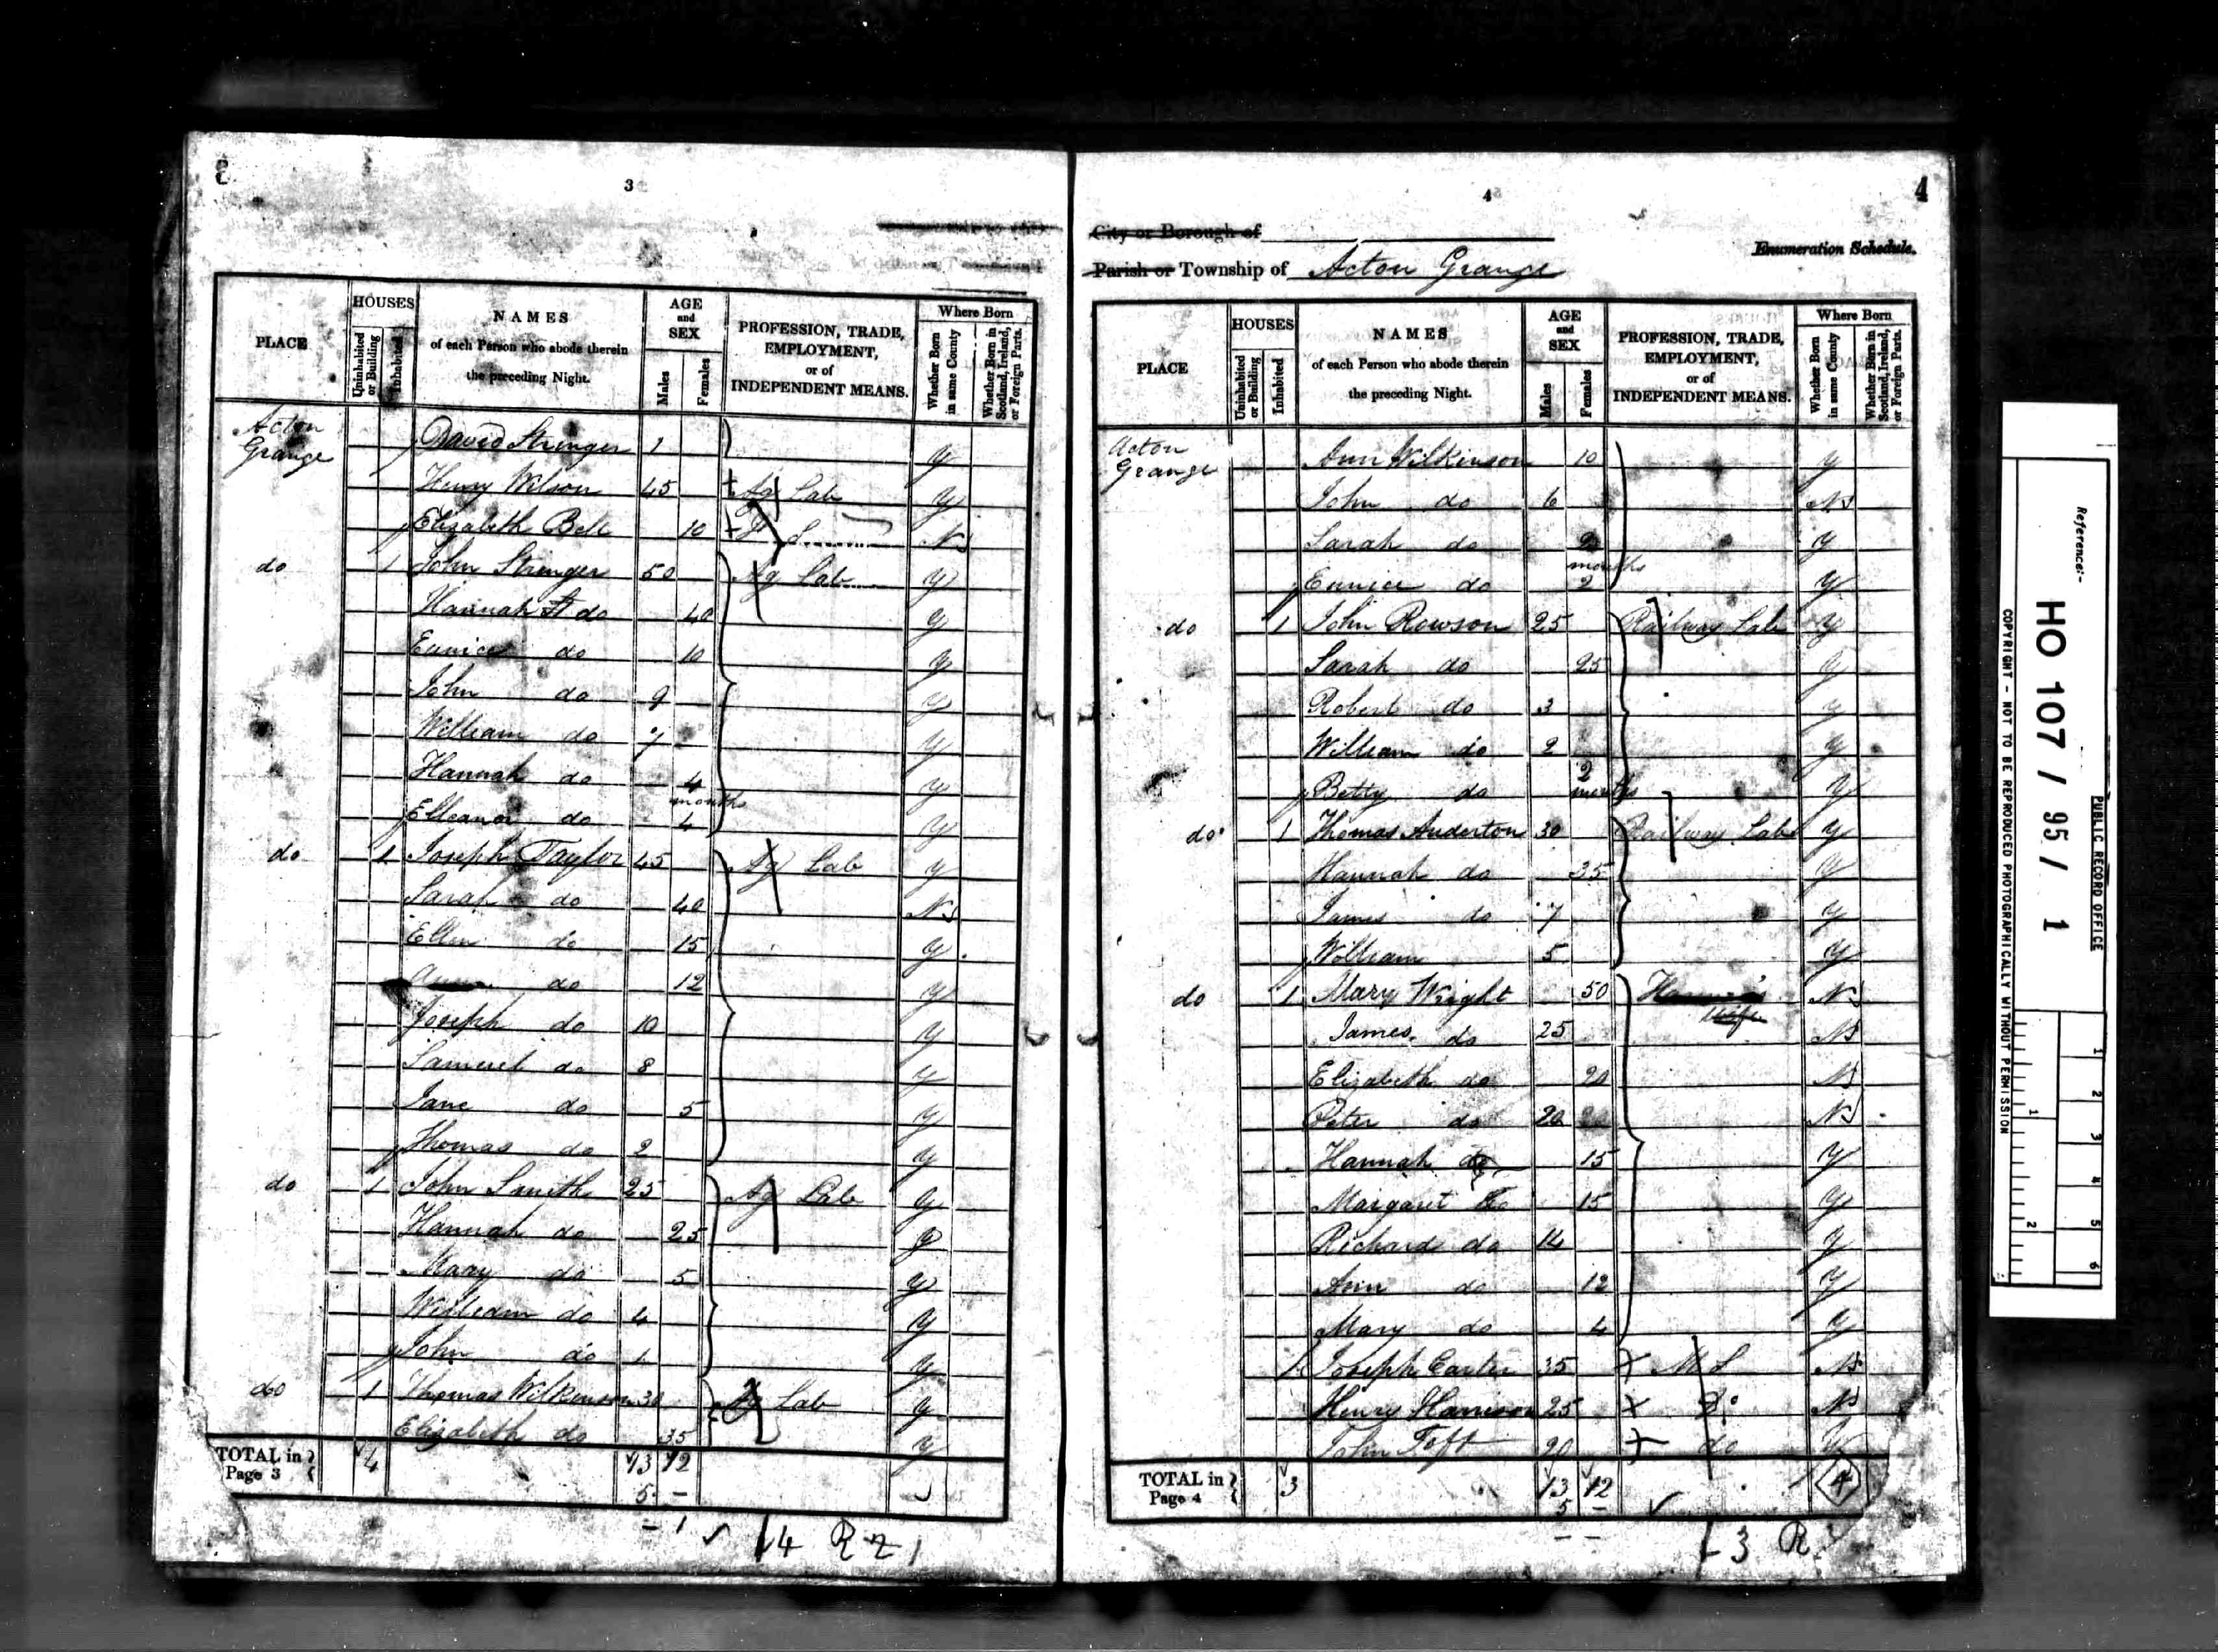 3
3
PLACE
HOUSES
Uninhabited or Building
Inhabited
NAMES
of each Person who abode therein
the preceding Night.
AGE
and
SEX
Males
Females
PROFESSION, TRADE,
EMPLOYMENT,
or of
INDEPENDENT MEANS.
Where Born
Whether Born in same County
Whether Born in Scotland, Ireland, or Foreign Parts.
Acton Grange David Stringer 1 y
Henry Wilson 45 Ag Lab y
Elizabeth Bell 10 N
do 1 John Stringer 50 Ag Lab y
Hannah do 40 y
Eunice do 10 y
John do 9 y
William do 7 y
Hannah do 4 y
Elleanor do 4 months y
do 1 Joseph Taylor 45 Ag Lab y
Sarah do 40 N
Ellen do 15 y
do 12 y
Joseph do 10 y
Samuel do 8 y
Jane do 5 y
Thomas do 2 y
do 1 John Smith 25 Ag Lab y
Hannah do 25 y
Mary do 5 y
William do 4 y
John do 1 y
do 1 Thomas Wilkinson 30 Ag Lab y
Elizabeth do 35 y
TOTAL in Page 3 4 13 12
5 –
– 1 4 R
4
4
City or Borough of
Enumeration Schedule.
Parish or Township of Acton Grange
PLACE
HOUSES
Uninhabited or Building
Inhabited
NAMES
of each Person who abode therein
the preceding Night.
AGE
and
SEX
Males
Females
PROFESSION, TRADE,
EMPLOYMENT,
or of
INDEPENDENT MEANS.
Where Born
Whether Born in same County
Whether Born in Scotland, Ireland, or Foreign Parts.
Acton Grange Ann Wilkinson 10 y
John do 6 N
Sarah do y
Eunice do months 2 y
do 1 John Rowson 25 Railway Lab y
Sarah do 25 y
Robert do 3 y
William do 2 y
Betty do 2 months y
do 1 Thomas Anderton 30 Railway Lab y
Hannah do 35 y
James do 7 y
William 5 y
do 1 Mary Wright 50 N
James do 25 N
Elizabeth do 20 N
Peter do 20 N
Hannah do 15 y
Margaret do 15 y
Richard do 14 y
Ann do 12 y
Mary do 4 y
Joseph Carter 35 M S N
Henry Harrison 25 Do N
John Toft 20 do
TOTAL in Page 4 3 13 12 4
5 –
– –
3 R
Reference:-
HO 107 / 95 / 1
PUBLIC RECORD OFFICE
COPYRIGHT - NOT TO BE REPRODUCED PHOTOGRAPHICALLY WITHOUT PERMISSION
1 2
1 2 3 4 5 6